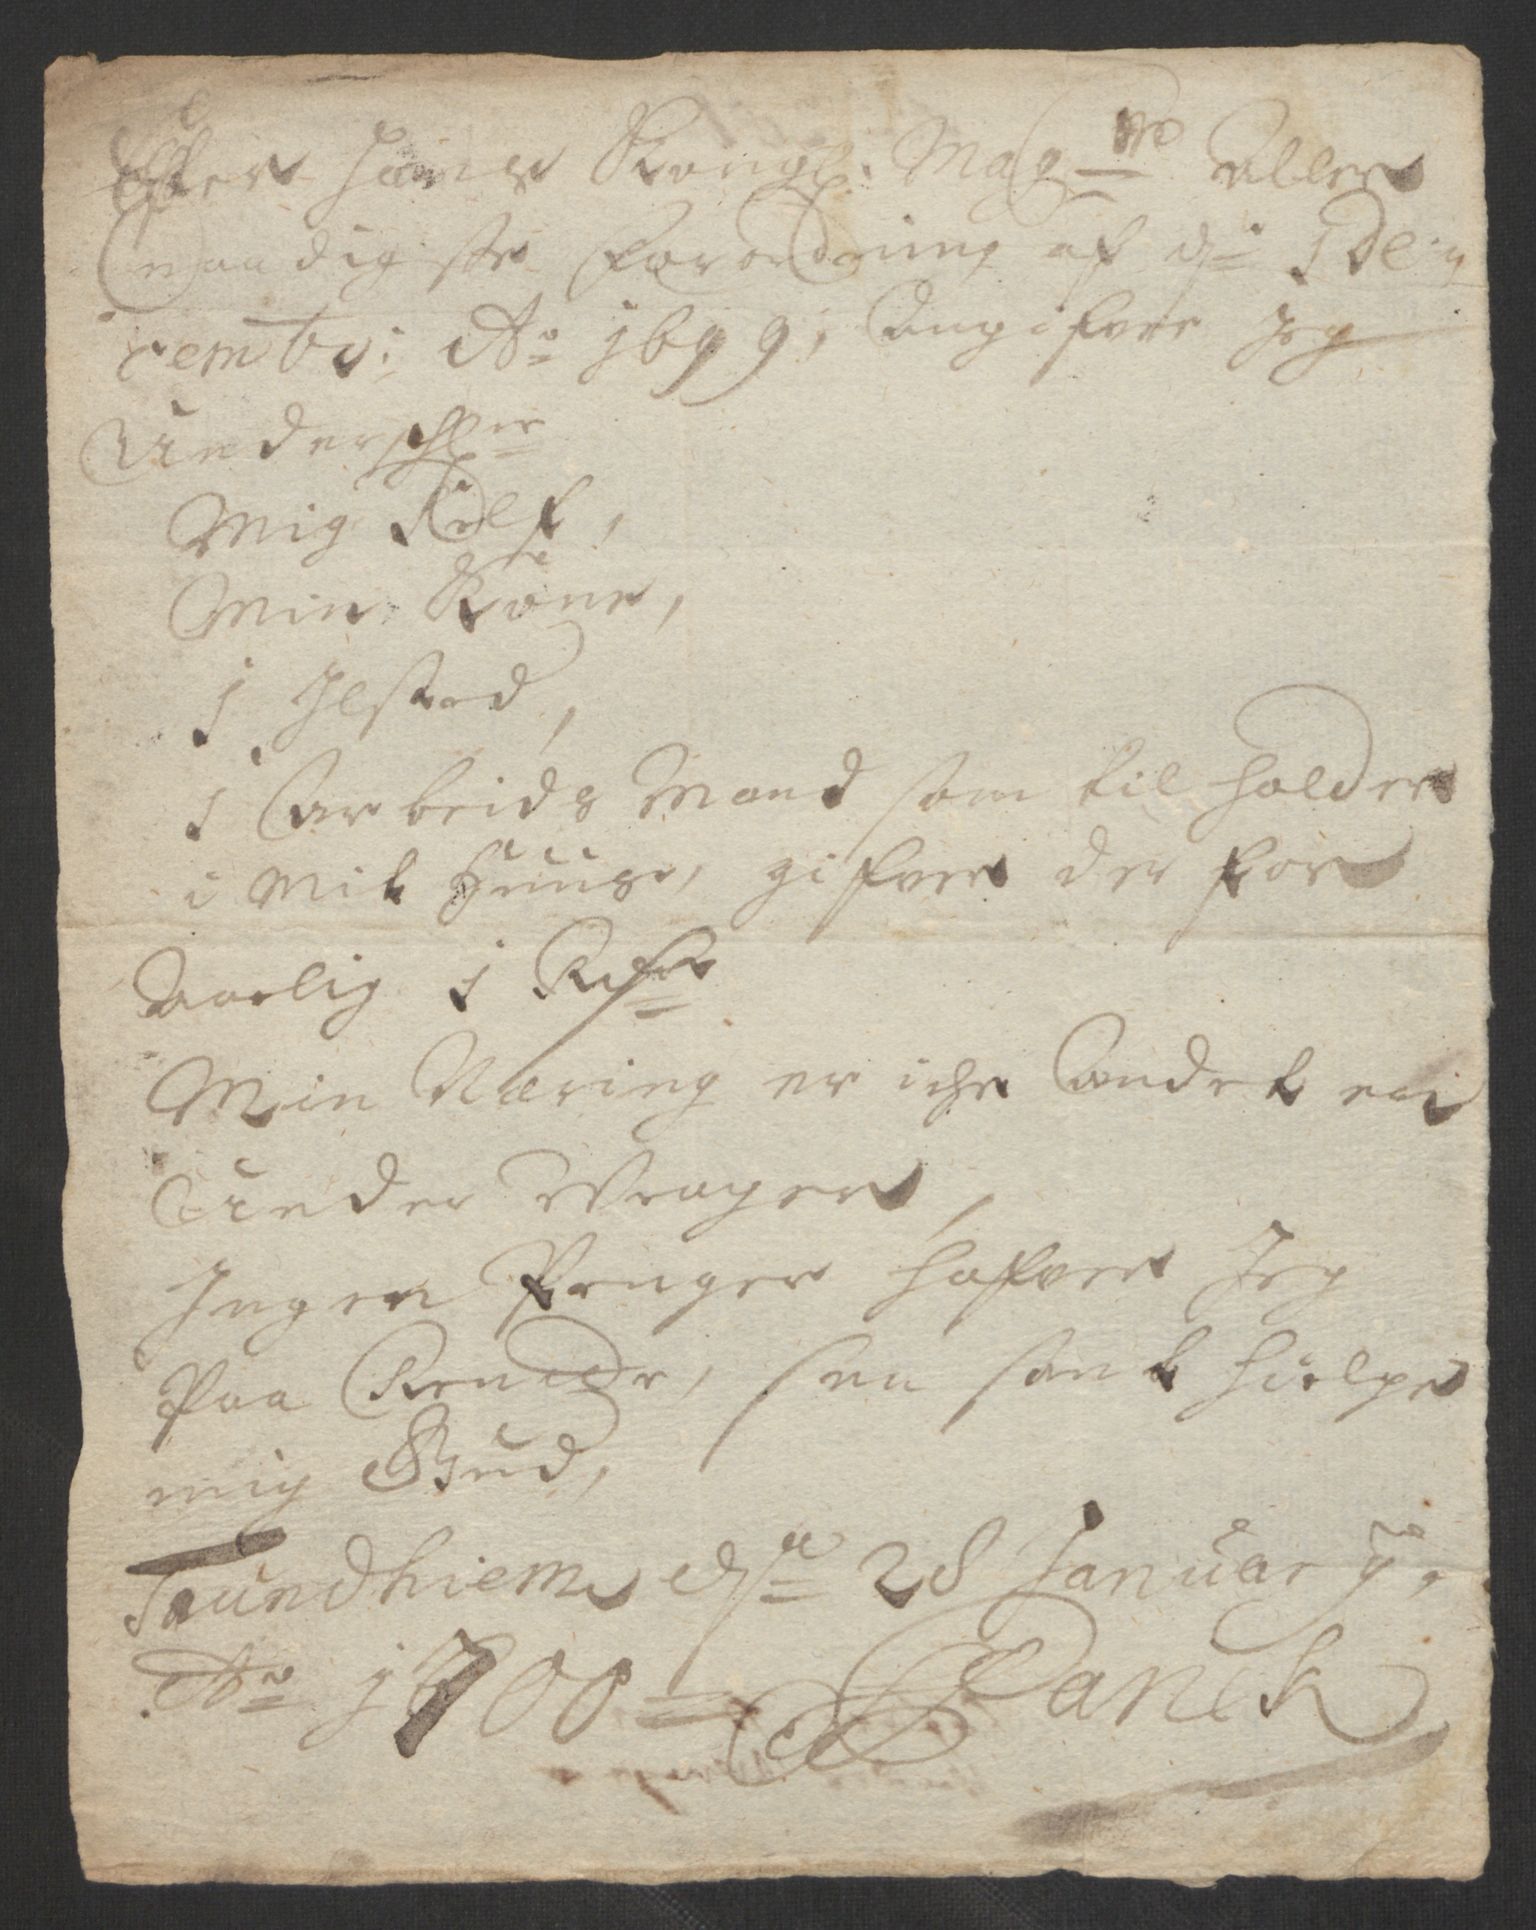 Efter Hans Kongl: May: tts Aller
Naadigste Forordning af d: 1 De-
cembr: Ao 1699, Angifver Jeg
Underschr
Mig Self,
Min Kone,
1 Ilsted,
1 Arbeids Mand som til holder
i Mit Huus, gifver der for
Aarlig 1 Rdr
Min Næring er iche Andet en
Under Wrager,
Ingen Penger hafver Jeg
Paa Rendte, saa sant hielpe
mig Gud,
Trundhiem d 28 Januarÿ.
Ao 1700 = Panck